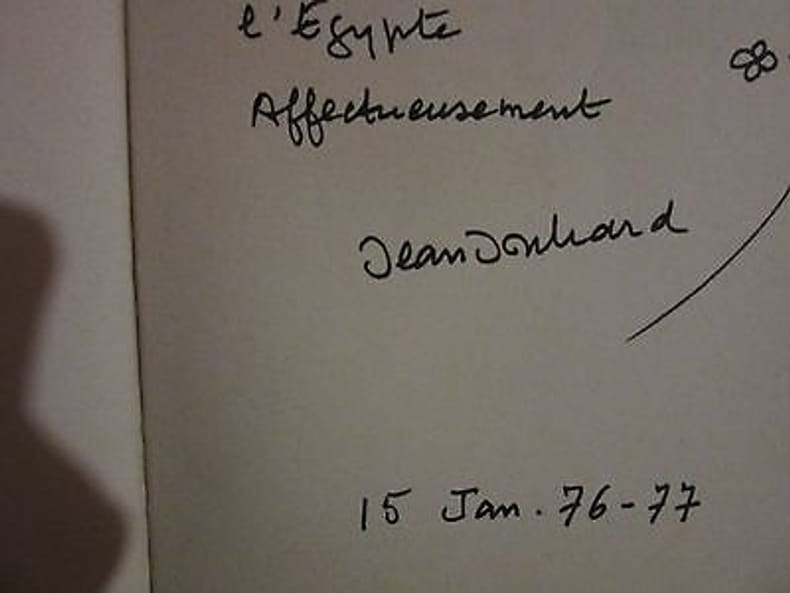 l'Egypte
Affectueusement
Jean
15 Jan. 76-77